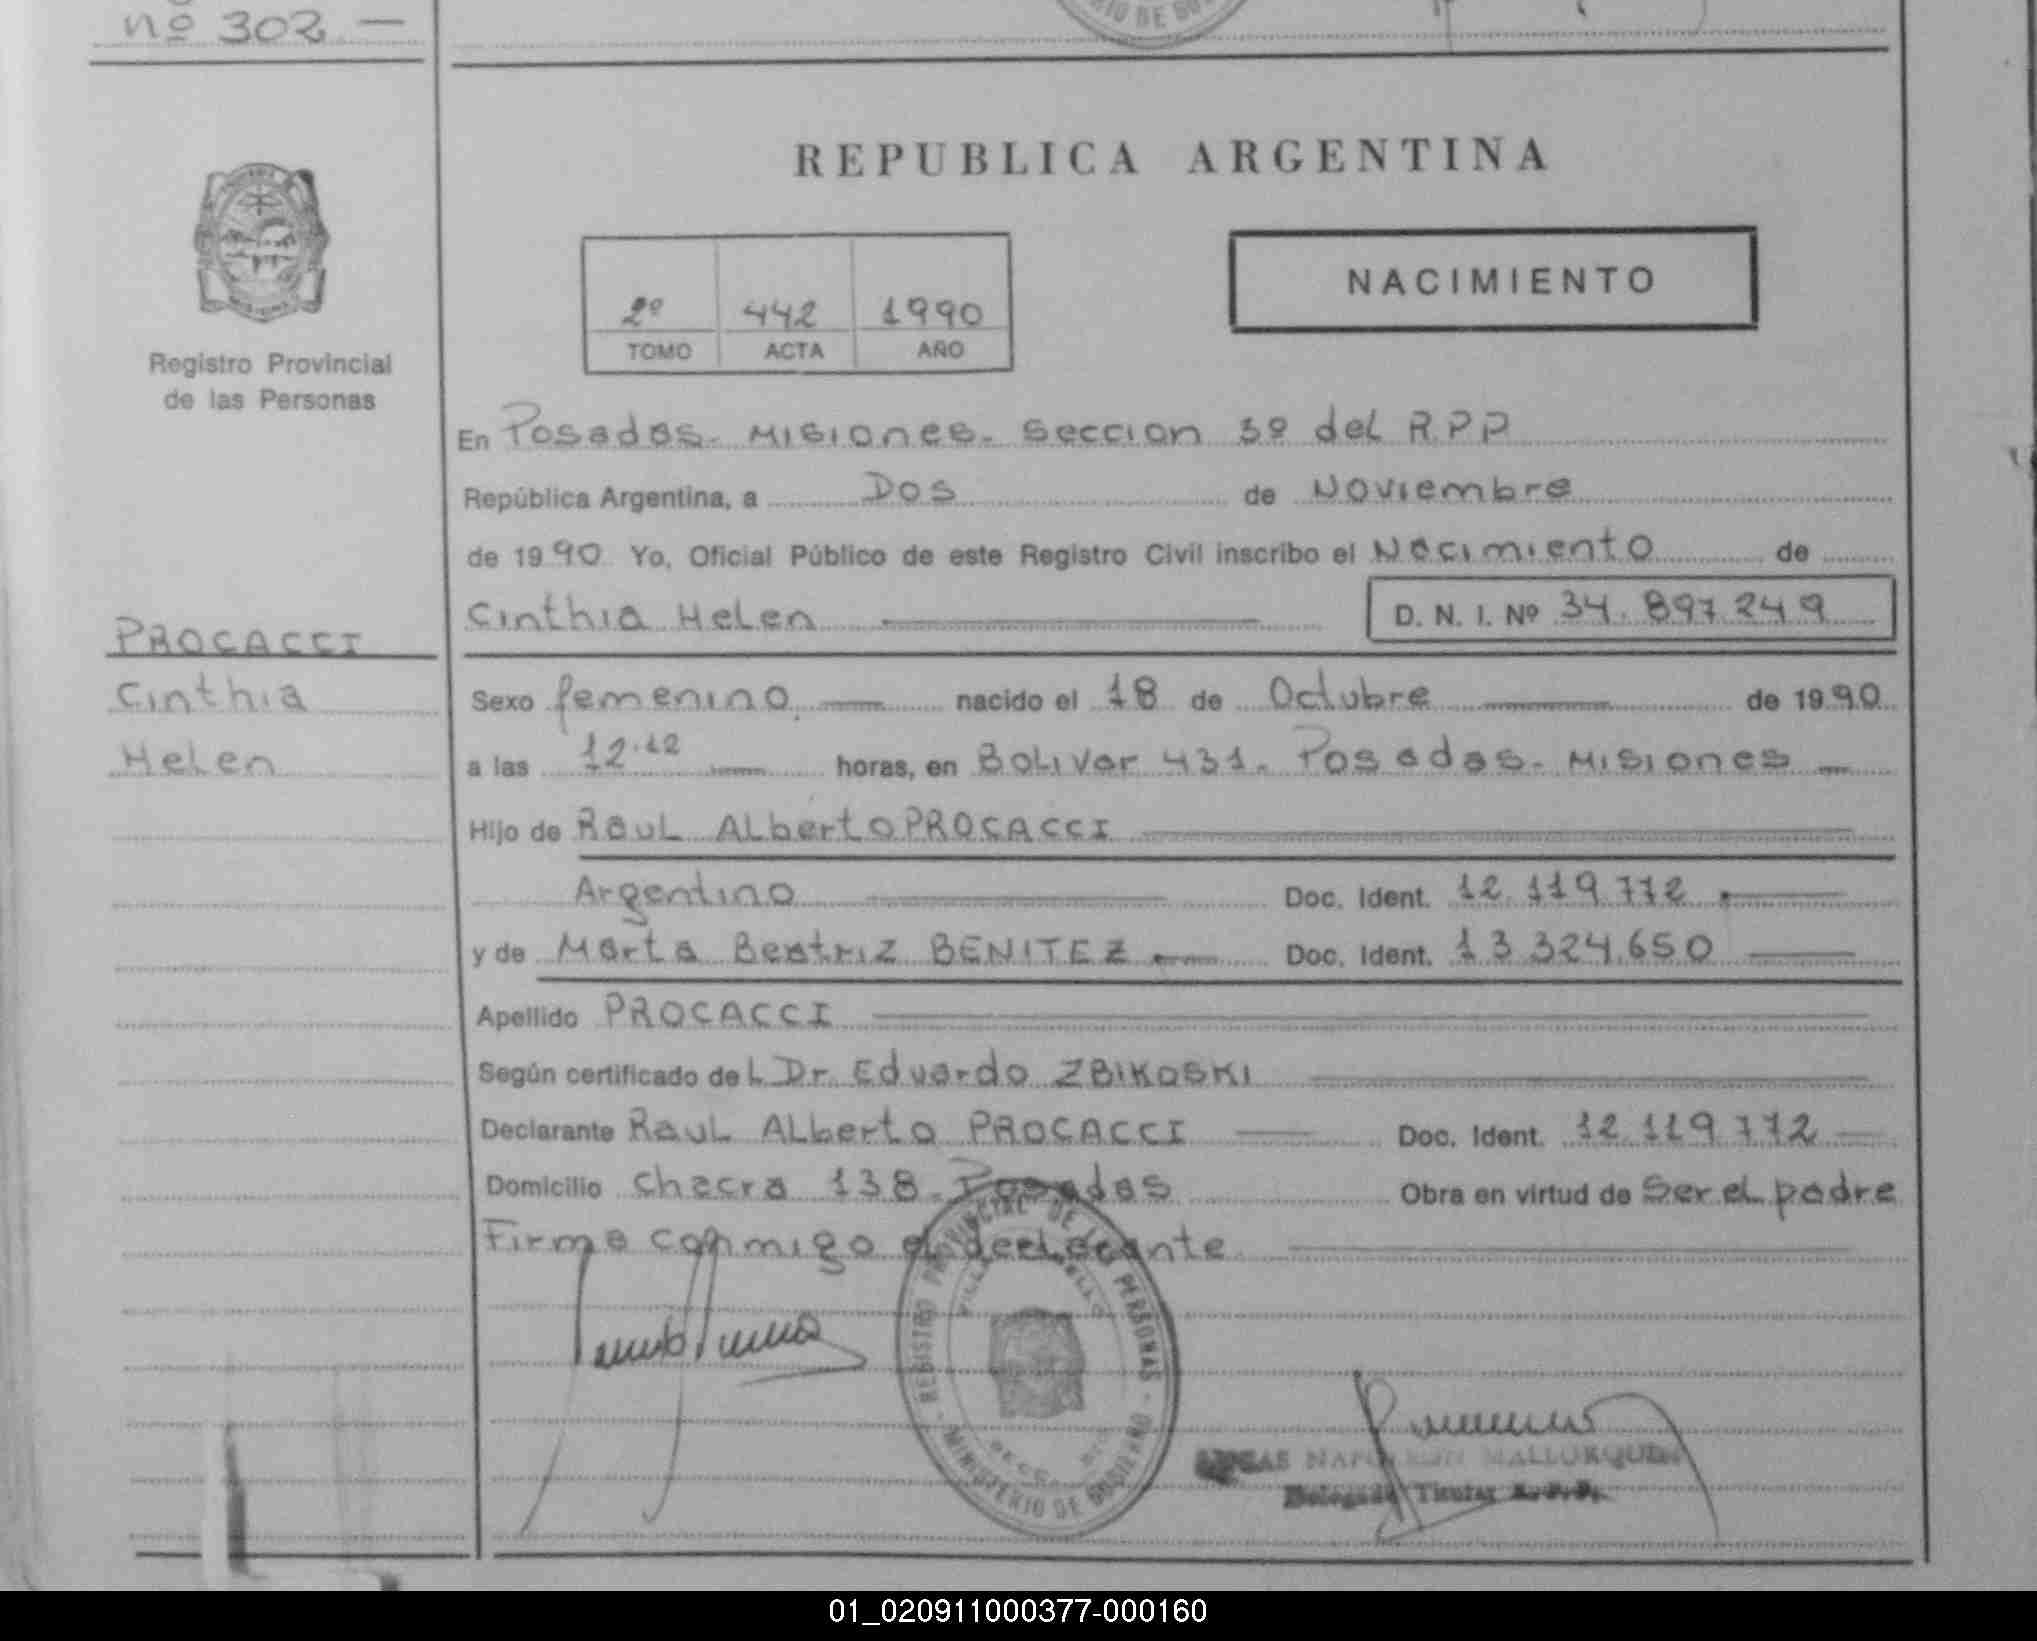 nº 302 —
REPUBLICA ARGENTINA
NACIMIENTO
2º 442 1990
TOMO ACTA AÑO
Registro Provincial
de las Personas
En Posadas - Misiones - Seccion 3º del R.P.P
República Argentina, a Dos de Noviembre
de 1990 Yo, Oficial Público de este Registro Civil inscribo el Nacimiento de
Cinthia Helen D. N. I. Nº 34.897.249
PROCACCI
Cinthia
Helen
Sexo femenino nacido el 18 de Octubre de 1990
a las 12.12 horas, en Bolivar 431. Posadas - Misiones
Hijo de Raul Alberto PROCACCI
Argentino Doc. Ident. 12.119.772
y de Marta Beatriz BENITEZ Doc. Ident. 13.324.650
Apellido PROCACCI
Según certificado de L Dr. Eduardo ZBIKOSKI
Declarante Raul Alberto PROCACCI Doc. Ident. 12.119.772
Domicilio Chacra 138 - Posadas Obra en virtud de Ser el padre
Firma conmigo el declarante
REGISTRO PROVINCIAL DE LAS PERSONAS - MINISTERIO DE GOBIERNO -
NAPOLEON MALLORQUIN
Delegado Titular R.P.P.
01_020911000377-000160